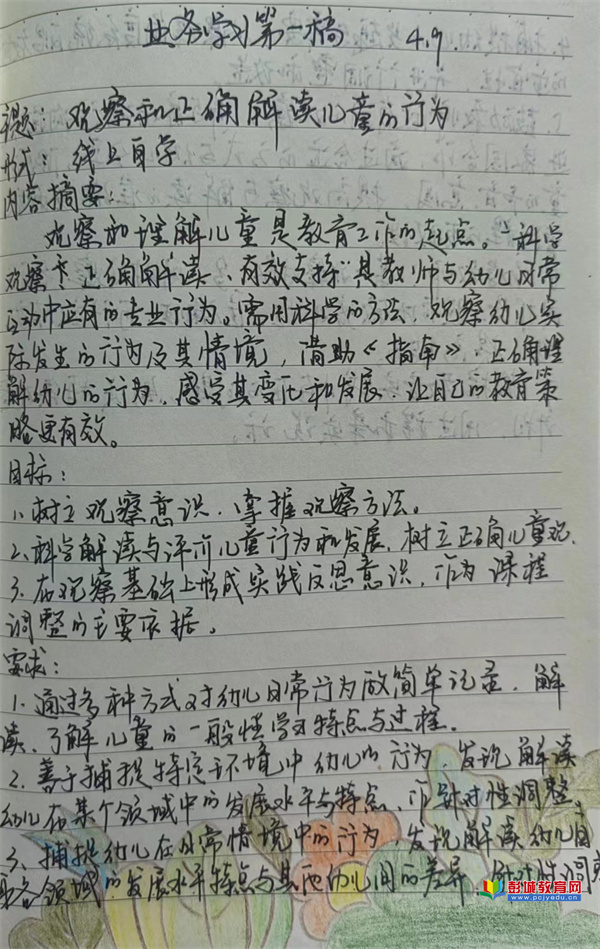 业务学习第一稿 4.9.
主题：观察和正确解读儿童的行为
形式：线上自学
内容摘要：
观察和理解儿童是教育工作的起点。"科学
观察、正确解读、有效支持"是教师与幼儿日常
互动中应有的专业行为。需用科学的方法，观察幼儿实
际发生的行为及其情境，借助《指南》，正确理
解幼儿的行为，感受其变化和发展，让自己的教育策
略更有效。
目标：
1、树立观察意识，掌握观察方法。
2、科学解读与评价儿童行为和发展，树立正确儿童观。
3、在观察基础上形成实践反思意识，作为课程
调整的主要依据。
要求：
1、通过多种方式对幼儿日常行为做简单记录，解
读、了解儿童的一般性学习特点与过程。
2、善于捕捉特定环境中幼儿的行为，发现解读
幼儿在某个领域中的发展水平与特点，作针对性调整。
3、捕捉幼儿在日常情境中的行为，发现解读幼儿
各领域的发展水平特点与其他幼儿间的差异，针对性调
彭城教育网
www.pcjyedu.cn